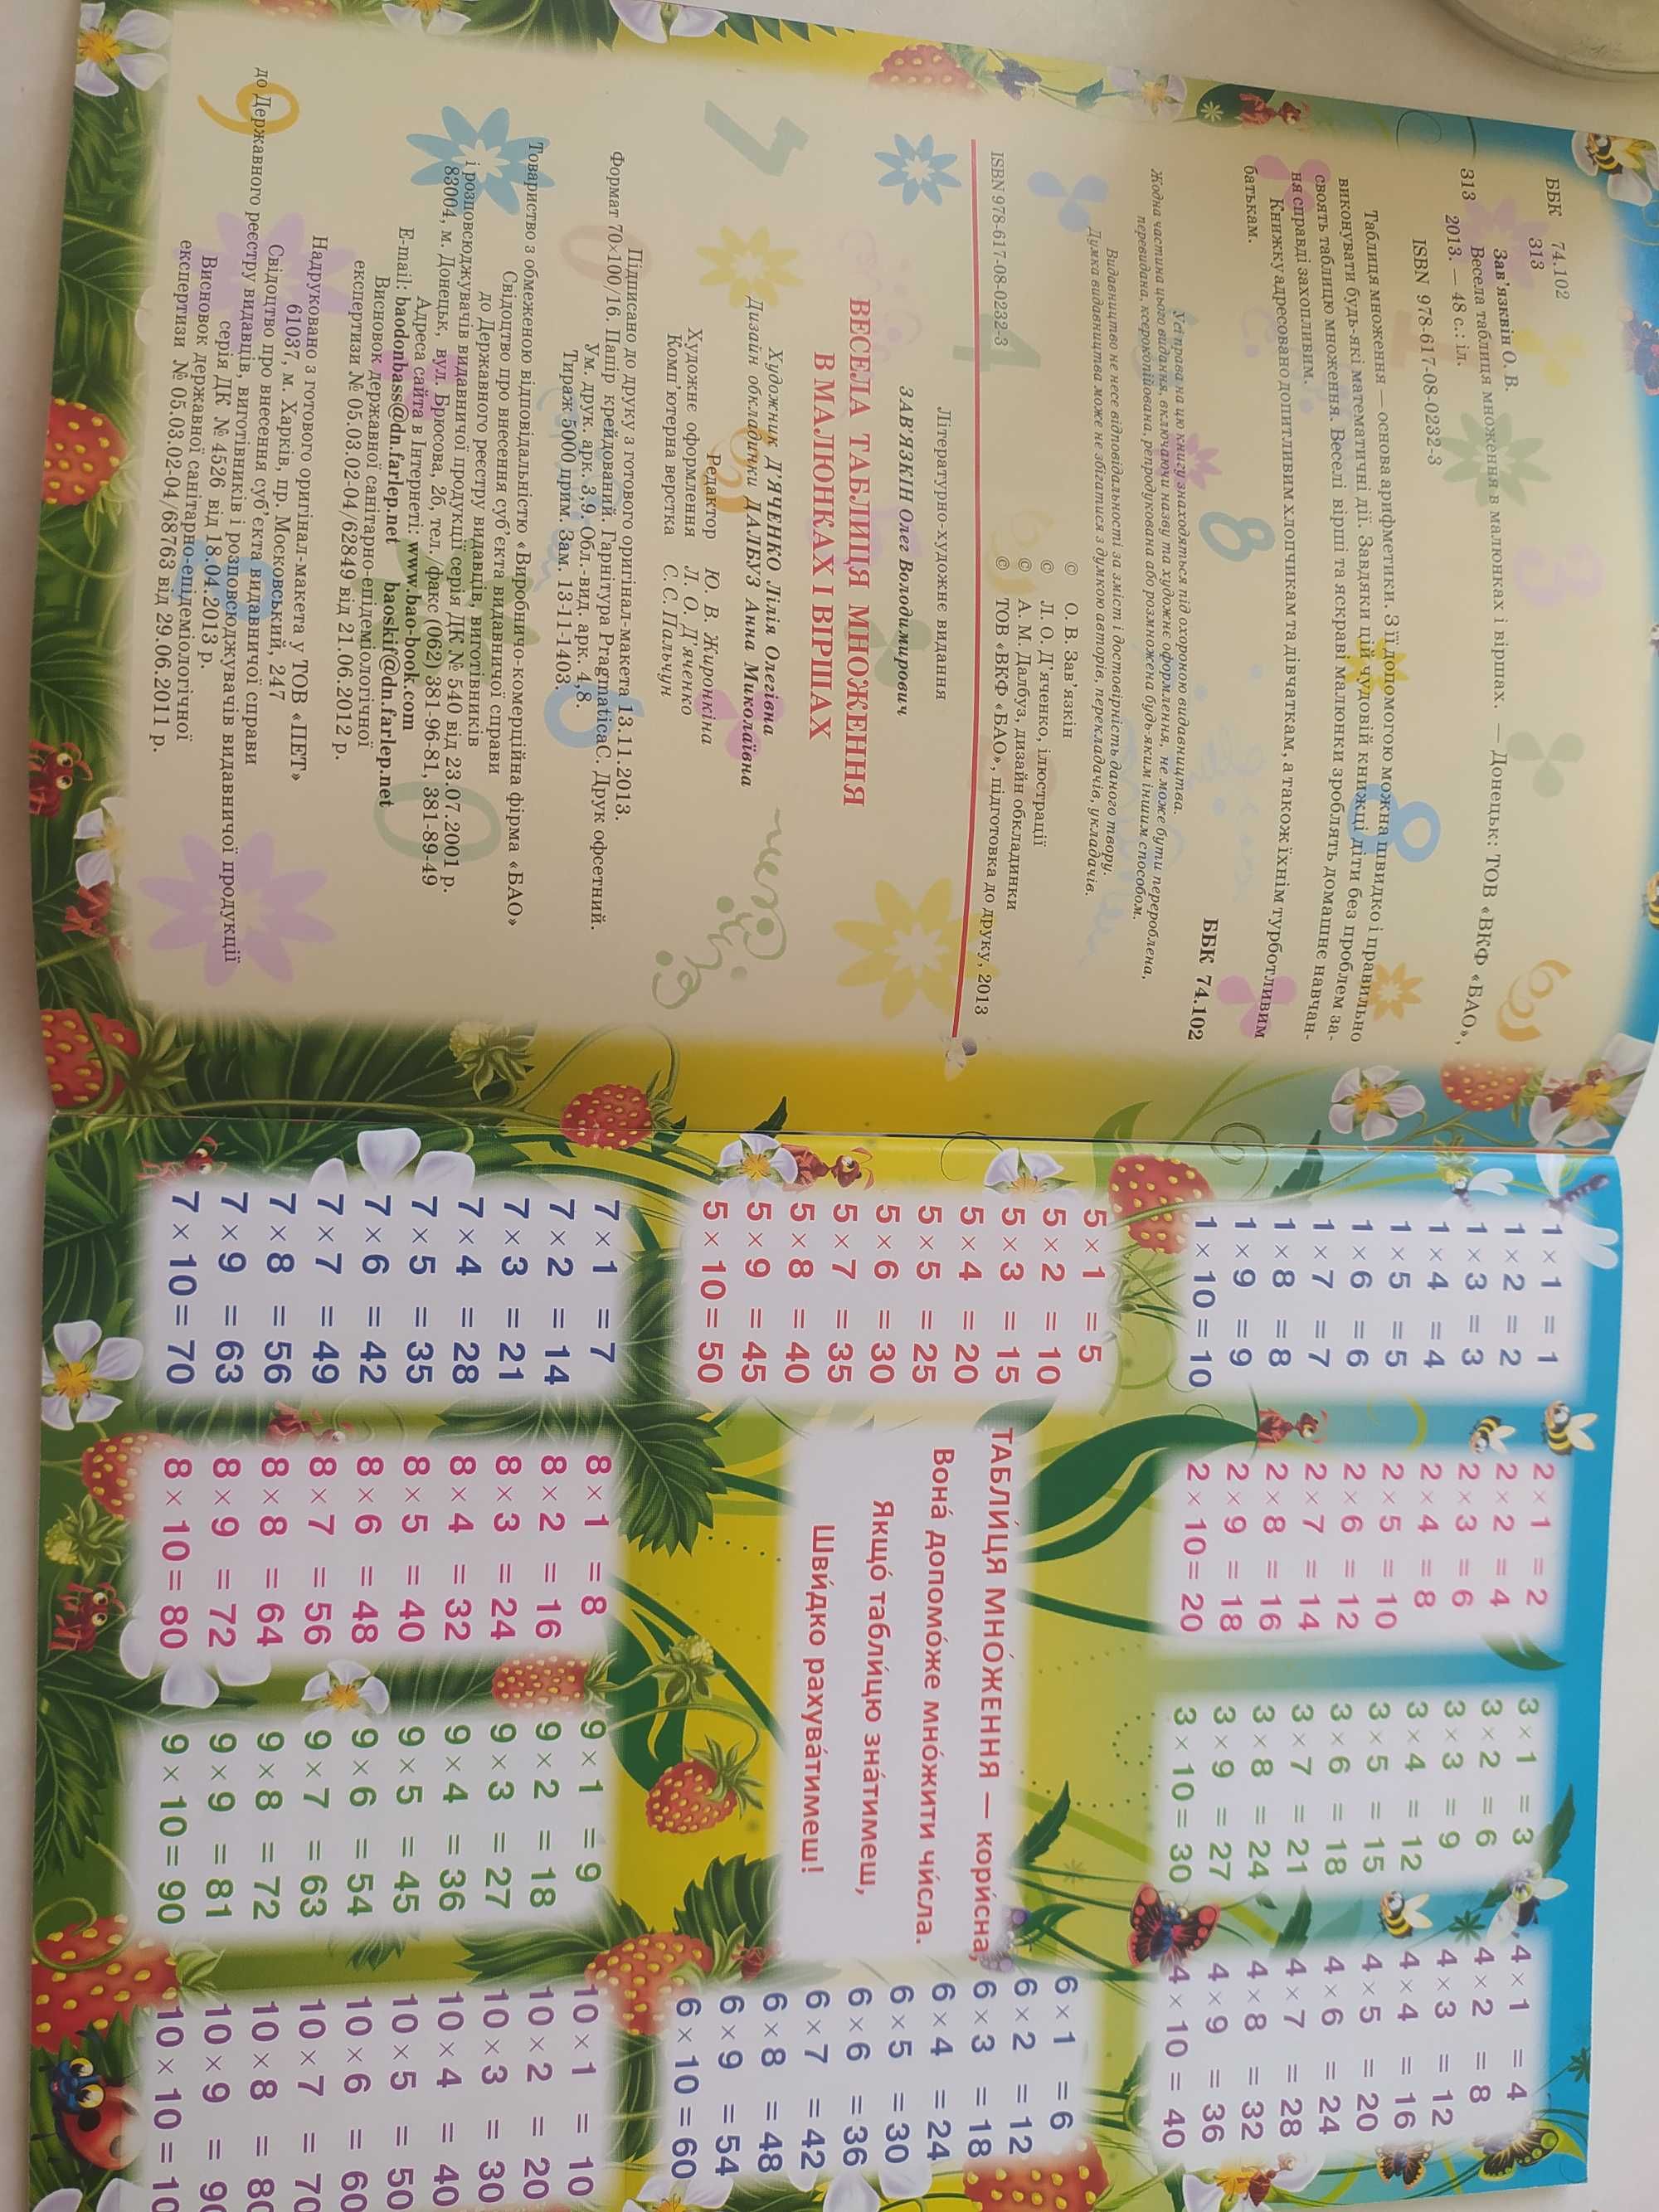 ББК 74.102
З13
Зав'язквін О. В.
З13 Весела таблиця множення в малюнках і віршах. — Донецьк: ТОВ «ВКФ «БАО»,
2013. — 48 с.: іл.
ISBN 978-617-08-0232-3
Таблиця множення — основа арифметики. З її допомогою можна швидко і правильно
виконувати будь-які математичні дії. Завдяки цій чудовій книжці діти без проблем за-
своять таблицю множення. Веселі вірші та яскраві малюнки зроблять домашнє навчан-
ня справді захопливим.
Книжку адресовано допитливим хлопчикам та дівчаткам, а також їхнім турботливим
батькам.
ББК 74.102
Усі права на цю книгу знаходяться під охороною видавництва.
Жодна частина цього видання, включаючи назву та художнє оформлення, не може бути перероблена,
перевидана, ксерокопійована, репродукована або розмножена будь-яким іншим способом.
Видавництво не несе відповідальності за зміст і достовірність даного твору.
Думка видавництва може не збігатися з думкою авторів, перекладачів, укладачів.
© О. В. Зав'язкін
© Л. О. Д'яченко, ілюстрації
© А. М. Далбуз, дизайн обкладинки
ISBN 978-617-08-0232-3 © ТОВ «ВКФ «БАО», підготовка до друку, 2013
Літературно-художнє видання
ЗАВ'ЯЗКІН Олег Володимирович
ВЕСЕЛА ТАБЛИЦЯ МНОЖЕННЯ
В МАЛЮНКАХ І ВІРШАХ
Художник Д'ЯЧЕНКО Лілія Олегівна
Дизайн обкладинки ДАЛБУЗ Анна Миколаївна
Редактор Ю. В. Жиронкіна
Художнє оформлення Л. О. Д'яченко
Комп'ютерна верстка С. С. Пальчун
Підписано до друку з готового оригінал-макета 13.11.2013.
Формат 70×100/16. Папір крейдований. Гарнітура PragmaticaC. Друк офсетний.
Ум. друк. арк. 3,9. Обл.-вид. арк. 4,8.
Тираж 5000 прим. Зам. 13-11-1403.
Товариство з обмеженою відповідальністю «Виробничо-комерційна фірма «БАО»
Свідоцтво про внесення суб'єкта видавничої справи
до Державного реєстру видавців, виготівників
і розповсюджувачів видавничої продукції серія ДК № 540 від 23.07.2001 р.
83004, м. Донецьк, вул. Брюсова, 2б, тел./факс (062) 381-96-81, 381-89-49
Адреса сайта в Інтернеті: www.bao-book.com
E-mail: baodonbass@dn.farlep.net baoskif@dn.farlep.net
Висновок державної санітарно-епідеміологічної
експертизи № 05.03.02-04/62849 від 21.06.2012 р.
Надруковано з готового оригінал-макета у ТОВ «ПЕТ»
61037, м. Харків, пр. Московський, 247
Свідоцтво про внесення суб'єкта видавничої справи
до Державного реєстру видавців, виготівників і розповсюджувачів видавничої продукції
серія ДК № 4526 від 18.04.2013 р.
Висновок державної санітарно-епідеміологічної
експертизи № 05.03.02-04/68763 від 29.06.2011 р.
1 × 1 = 1
1 × 2 = 2
1 × 3 = 3
1 × 4 = 4
1 × 5 = 5
1 × 6 = 6
1 × 7 = 7
1 × 8 = 8
1 × 9 = 9
1 × 10 = 10
2 × 1 = 2
2 × 2 = 4
2 × 3 = 6
2 × 4 = 8
2 × 5 = 10
2 × 6 = 12
2 × 7 = 14
2 × 8 = 16
2 × 9 = 18
2 × 10 = 20
3 × 1 = 3
3 × 2 = 6
3 × 3 = 9
3 × 4 = 12
3 × 5 = 15
3 × 6 = 18
3 × 7 = 21
3 × 8 = 24
3 × 9 = 27
3 × 10 = 30
4 × 1 = 4
4 × 2 = 8
4 × 3 = 12
4 × 4 = 16
4 × 5 = 20
4 × 6 = 24
4 × 7 = 28
4 × 8 = 32
4 × 9 = 36
4 × 10 = 40
5 × 1 = 5
5 × 2 = 10
5 × 3 = 15
5 × 4 = 20
5 × 5 = 25
5 × 6 = 30
5 × 7 = 35
5 × 8 = 40
5 × 9 = 45
5 × 10 = 50
ТАБЛИ́ЦЯ МНО́ЖЕННЯ — кори́сна,
Вона́ допомо́же мно́жити чи́сла.
Якщо́ табли́цю зна́тимеш,
Шви́дко рахува́тимеш!
6 × 1 = 6
6 × 2 = 12
6 × 3 = 18
6 × 4 = 24
6 × 5 = 30
6 × 6 = 36
6 × 7 = 42
6 × 8 = 48
6 × 9 = 54
6 × 10 = 60
7 × 1 = 7
7 × 2 = 14
7 × 3 = 21
7 × 4 = 28
7 × 5 = 35
7 × 6 = 42
7 × 7 = 49
7 × 8 = 56
7 × 9 = 63
7 × 10 = 70
8 × 1 = 8
8 × 2 = 16
8 × 3 = 24
8 × 4 = 32
8 × 5 = 40
8 × 6 = 48
8 × 7 = 56
8 × 8 = 64
8 × 9 = 72
8 × 10 = 80
9 × 1 = 9
9 × 2 = 18
9 × 3 = 27
9 × 4 = 36
9 × 5 = 45
9 × 6 = 54
9 × 7 = 63
9 × 8 = 72
9 × 9 = 81
9 × 10 = 90
10 × 1 = 10
10 × 2 = 20
10 × 3 = 30
10 × 4 = 40
10 × 5 = 50
10 × 6 = 60
10 × 7 = 70
10 × 8 = 80
10 × 9 = 90
10 × 10 = 10